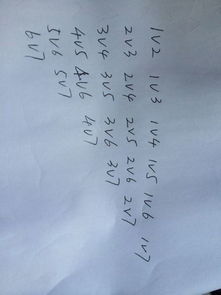 1v2 1v3 1v4 1v5 1v6 1v7
2v3 2v4 2v5 2v6 2v7
3v4 3v5 3v6 3v7
4v5 4v6 4v7
5v6 5v7
6v7